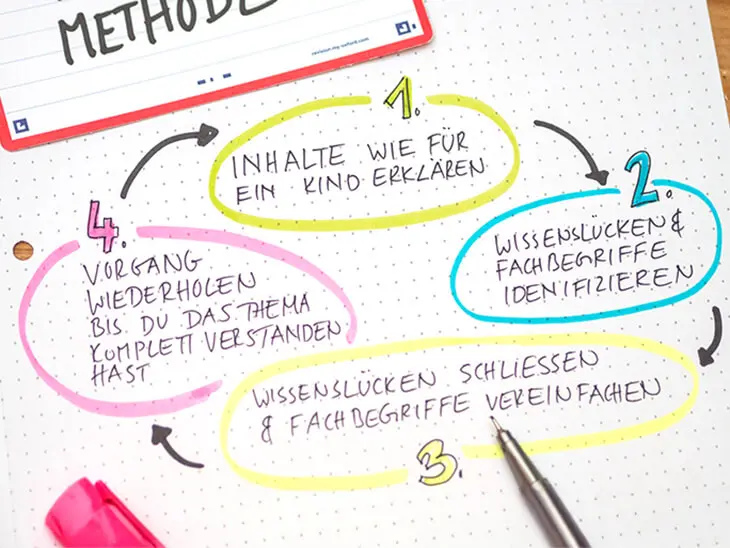 METHODE
revision.my-oxford.com
1.
INHALTE WIE FÜR
EIN KIND ERKLÄREN
2.
WISSENSLÜCKEN &
FACHBEGRIFFE
IDENIFIZIEREN
3.
WISSENSLÜCKEN SCHLIESSEN
& FACHBEGRIFFE VEREINFACHEN
4.
VORGANG
WIEDERHOLEN
BIS DU DAS THEMA
KOMPLETT VERSTANDEN
HAST